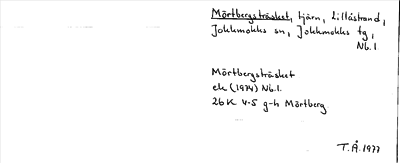 Mörtbergsträsket, tjärn, Lillåstrand,
Jokkmokks sn, Jokkmokks tg,
Nb.l.
Mörtbergsträsket
ek (1974) Nb.l.
26K 4-5 g-h Mörtberg
T.Å. 1977